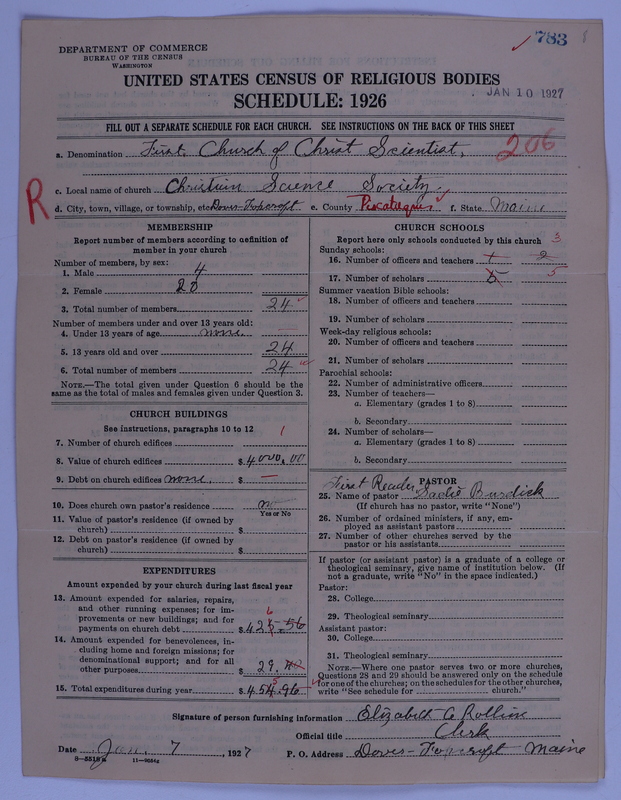 783
DEPARTMENT OF COMMERCE
BUREAU OF THE CENSUS
WASHINGTON
UNITED STATES CENSUS OF RELIGIOUS BODIES
SCHEDULE: 1926
JAN 10 1927
FILL OUT A SEPARATE SCHEDULE FOR EACH CHURCH. SEE INSTRUCTIONS ON THE BACK OF THIS SHEET
a. Denomination First Church of Christ Scientist. 206
c. Local name of church Christian Science Society
R
d. City, town, village, or township, etc. Dover-Foxcroft e. County Piscataquis f. State Maine
MEMBERSHIP
Report number of members according to definition of
member in your church
Number of members, by sex:
1. Male 4
2. Female 20
3. Total number of members 24
Number of members under and over 13 years old:
4. Under 13 years of age none
5. 13 years old and over 24
6. Total number of members 24
NOTE.—The total given under Question 6 should be the
same as the total of males and females given under Question 3.
CHURCH BUILDINGS
See instructions, paragraphs 10 to 12
7. Number of church edifices 1
8. Value of church edifices $4000.00
9. Debt on church edifices none. $ —
10. Does church own pastor's residence no
Yes or No
11. Value of pastor's residence (if owned by
church) $
12. Debt on pastor's residence (if owned by
church) $
EXPENDITURES
Amount expended by your church during last fiscal year
13. Amount expended for salaries, repairs,
and other running expenses; for im-
provements or new buildings; and for
payments on church debt $425.56
6
14. Amount expended for benevolences, in-
cluding home and foreign missions; for
denominational support; and for all
other purposes $ 29.
15. Total expenditures during year $454.96
5
CHURCH SCHOOLS
Report here only schools conducted by this church 3
Sunday schools:
16. Number of officers and teachers 1 2
17. Number of scholars 5 5
Summer vacation Bible schools:
18. Number of officers and teachers
19. Number of scholars
Week-day religious schools:
20. Number of officers and teachers
21. Number of scholars
Parochial schools:
22. Number of administrative officers
23. Number of teachers—
a. Elementary (grades 1 to 8)
b. Secondary
24. Number of scholars—
a. Elementary (grades 1 to 8)
b. Secondary
First Reader PASTOR
25. Name of pastor Sadie Burdick
(If church has no pastor, write "None")
26. Number of ordained ministers, if any, em-
ployed as assistant pastors
27. Number of other churches served by the
pastor or his assistants
If pastor (or assistant pastor) is a graduate of a college or
theological seminary, give name of institution below. (If
not a graduate, write "No" in the space indicated.)
Pastor:
28. College
29. Theological seminary
Assistant pastor:
30. College
31. Theological seminary
NOTE.—Where one pastor serves two or more churches,
Questions 28 and 29 should be answered only on the schedule
for one of the churches; on the schedules for the other churches,
write "See schedule for church."
Signature of person furnishing information Elizabeth C Rollins
Official title Clerk
Date Jan. 7, 1927 P. O. Address Dover-Foxcroft Maine
8-5518a 11-9654g